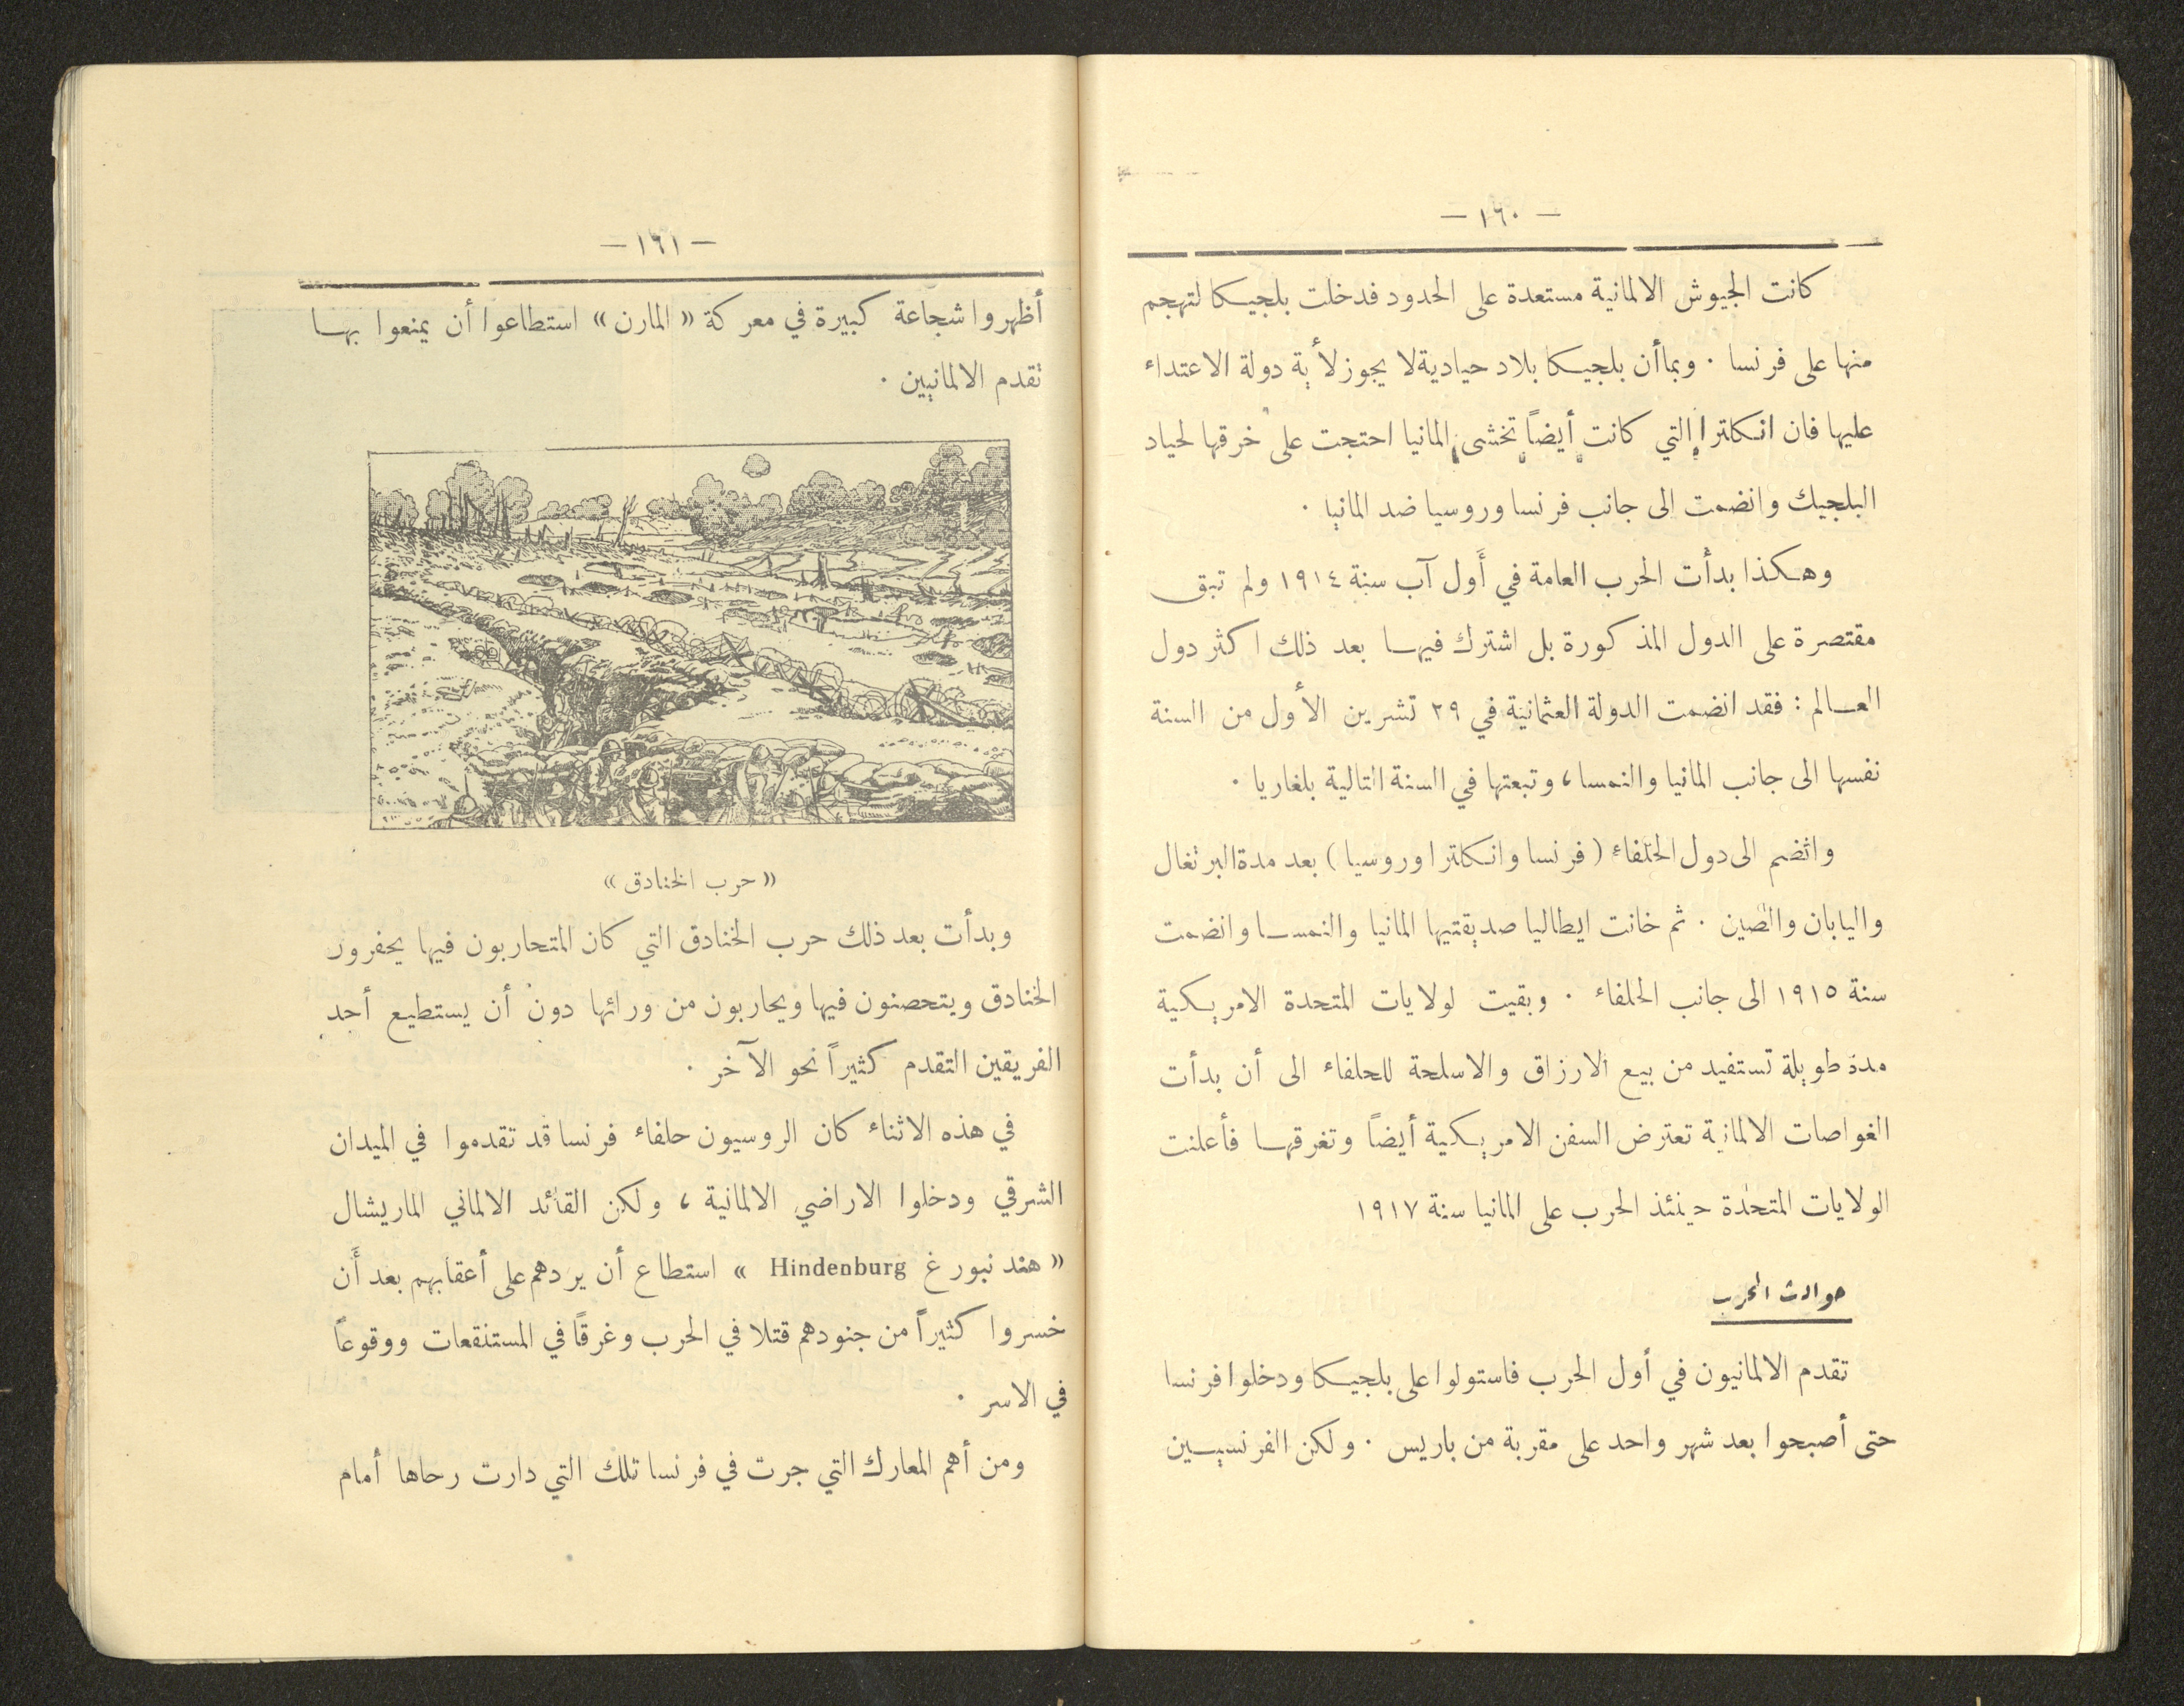 — ١٦٠ —
كانت الجيوش الالمانية مستعدة على الحدود فدخلت بلجيكا لتهجم
منها على فرنسا . وبما أن بلجيكا بلاد حيادية لا يجوز لأية دولة الاعتداء
عليها فان انكلترا التي كانت أيضاً تخشى المانيا احتجت على خرقها لحياد
البلجيك وانضمت الى جانب فرنسا وروسيا ضد المانيا .
وهكذا بدأت الحرب العامة في أول آب سنة ١٩١٤ ولم تبق
مقتصرة على الدول المذكورة بل اشترك فيها بعد ذلك اكثر دول
العالم : فقد انضمت الدولة العثمانية في ٢٩ تشرين الأول من السنة
نفسها الى جانب المانيا والنمسا ، وتبعتها في السنة التالية بلغاريا .
وانضم الى دول الحلفاء ( فرنسا وانكلترا وروسيا ) بعد مدة البرتغال
واليابان والصين . ثم خانت ايطاليا صديقتيها المانيا والنمسا وانضمت
سنة ١٩١٥ الى جانب الحلفاء . وبقيت لولايات المتحدة الامريكية
مدة طويلة تستفيد من بيع الارزاق والاسلحة للحلفاء الى أن بدأت
الغواصات الالمانية تعترض السفن الامريكية أيضاً وتغرقها فأعلنت
الولايات المتحدة حينئذ الحرب على المانيا سنة ١٩١٧
حوادث الحرب
تقدم الالمانيون في أول الحرب فاستولوا على بلجيكا ودخلوا فرنسا
حتى أصبحوا بعد شهر واحد على مقربة من باريس . ولكن الفرنسيين
— ١٦١ —
أظهروا شجاعة كبيرة في معركة « المارن » استطاعوا أن يمنعوا بها
تقدم الالمانيين .
« حرب الخنادق »
وبدأت بعد ذلك حرب الخنادق التي كان المتحاربون فيها يحفرون
الخنادق ويتحصنون فيها ويحاربون من ورائها دون أن يستطيع أحد
الفريقين التقدم كثيراً نحو الآخر .
في هذه الاثناء كان الروسيون حلفاء فرنسا قد تقدموا في الميدان
الشرقي ودخلوا الاراضي الالمانية ، ولكن القائد الالماني الماريشال
« هندنبورغ Hindenburg » استطاع أن يردهم على أعقابهم بعد أن
خسروا كثيراً من جنودهم قتلا في الحرب وغرقاً في المستنقعات ووقوعاً
في الاسر .
ومن أهم المعارك التي جرت في فرنسا تلك التي دارت رحاها أمام